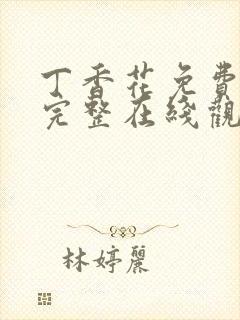 丁香花免費
完整在綫觀
林婷麗